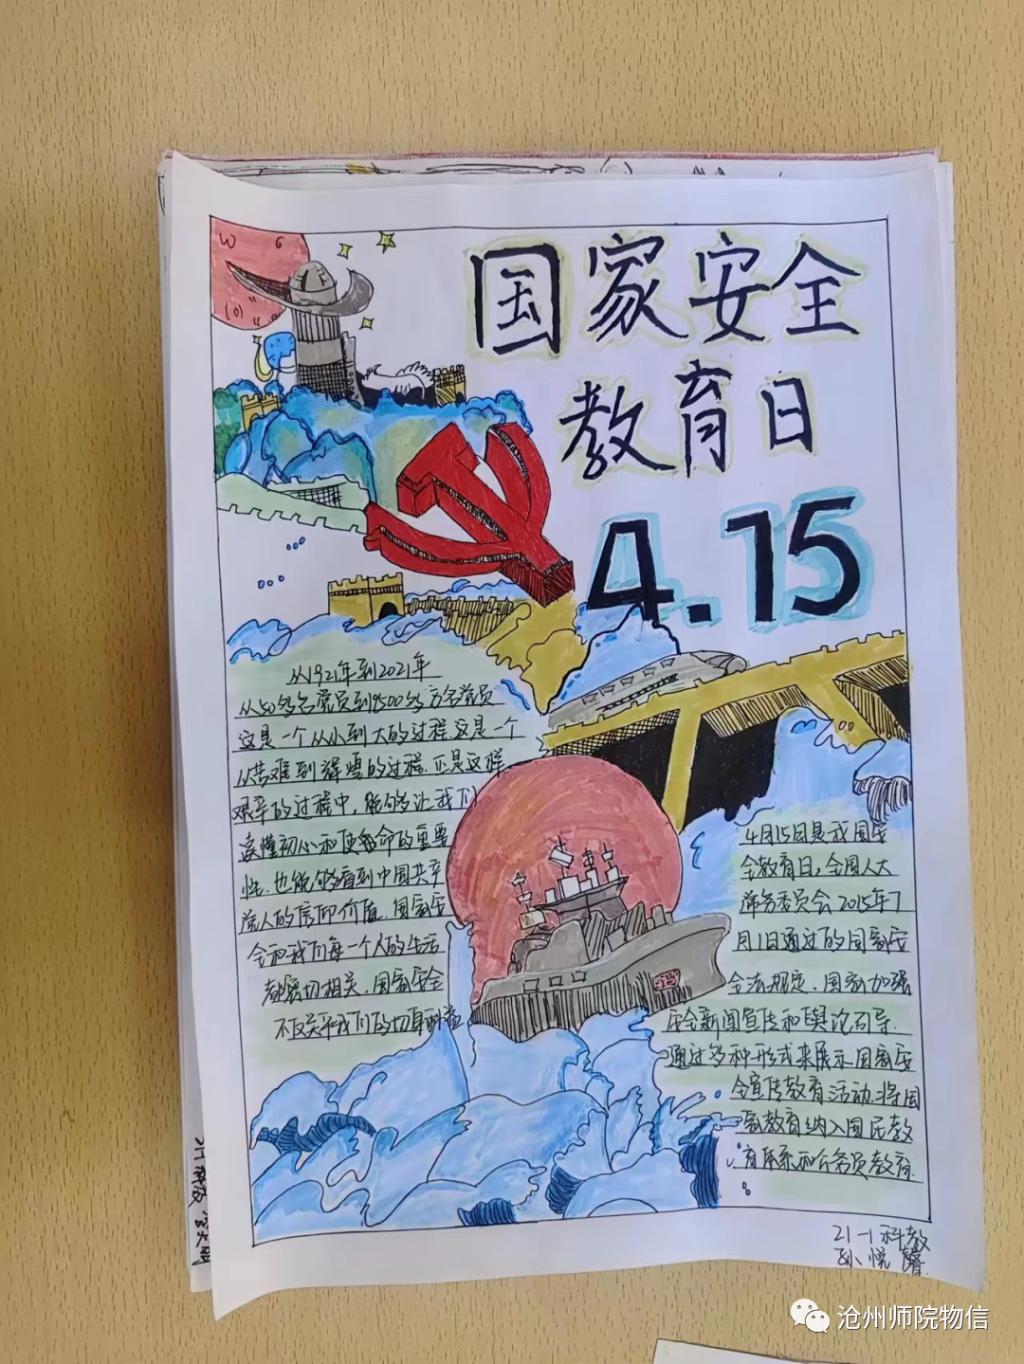 国家安全
教育日
4.15
从1921年到2021年
从50多名党员到9500多万名党员
这是一个从小到大的过程这是一个
从苦难到辉煌的过程.正是这样
艰辛的过程中,能够让我们
读懂初心和使命的重要
性.也能够看到中国共产
党人的信仰价值.国家安
全和我们每一个人的生活
都密切相关.国家安全
不仅关乎我们的切身利益
4月15日是我国安
全教育日,全国人大
常务委员会2015年7
月1日通过的国家安
全法规定.国家加强
安全新闻宣传和舆论引导.
通过多种形式来展示国家安
全宣传教育活动.将国
家教育纳入国民教
育体系和公务员教育.
21-1科教
孙悦馨
沧州师院物信